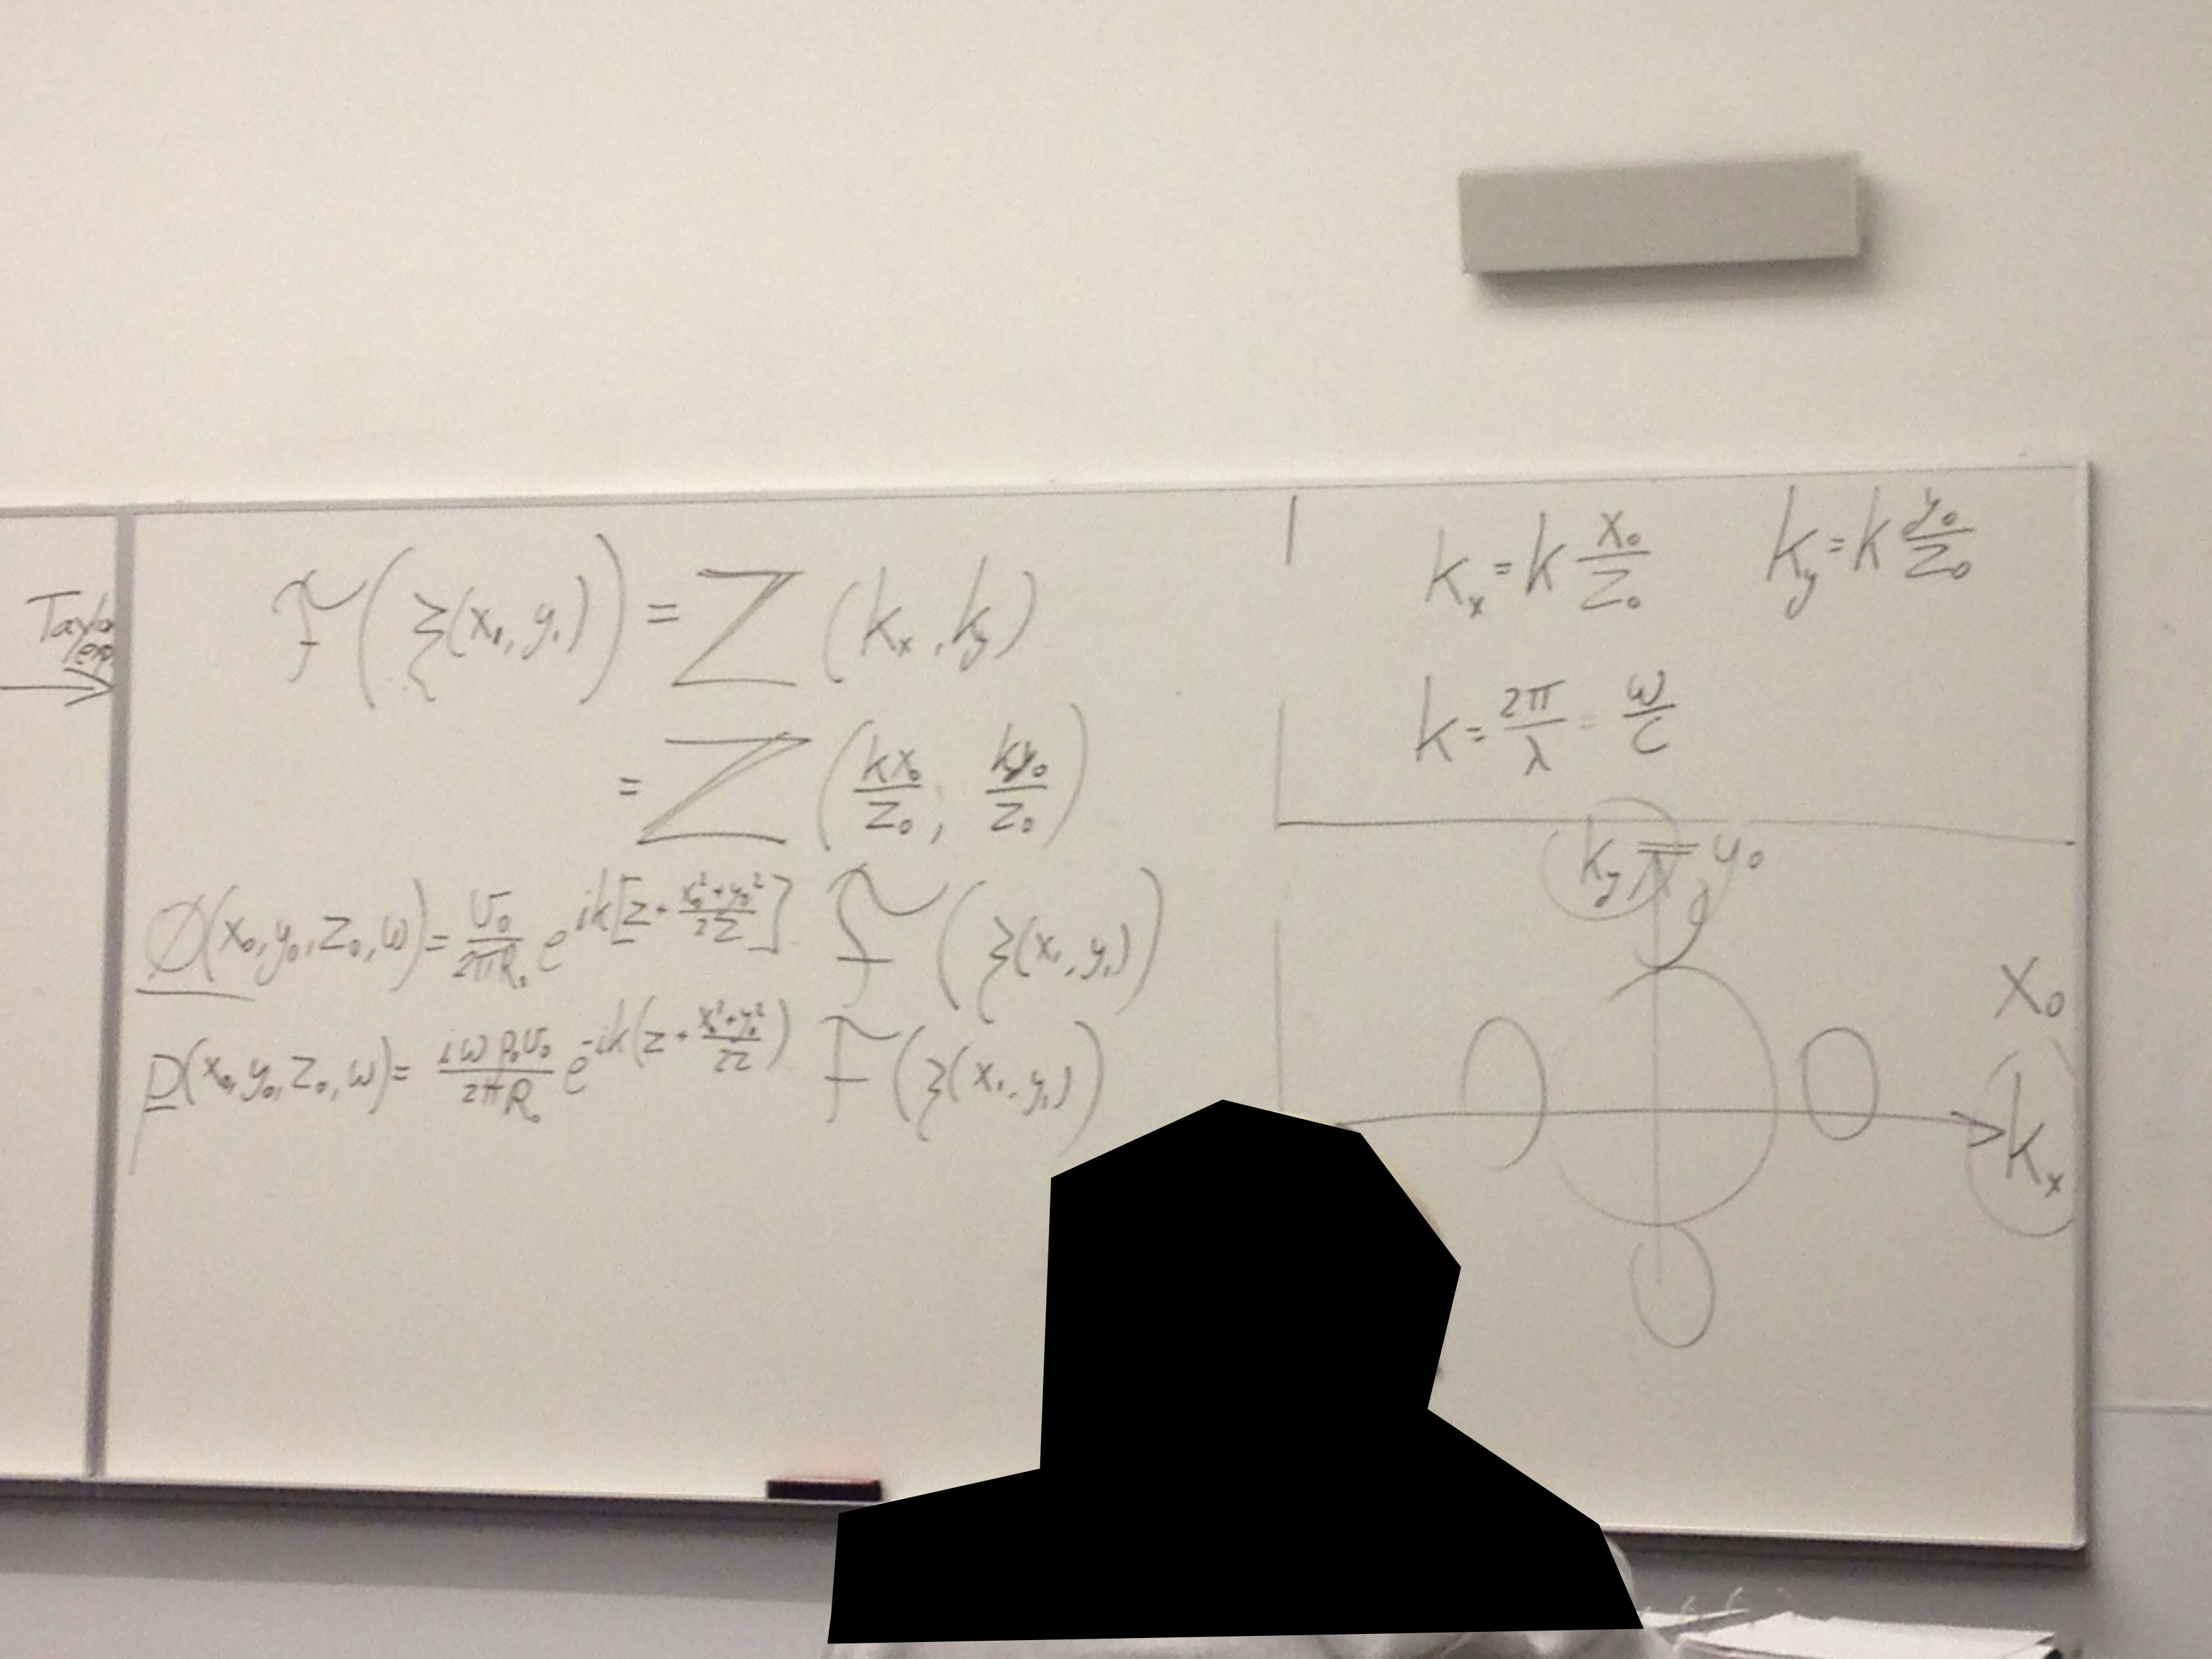 Taylo
exp
F̃(ξ(x₁, y₁)) = Z (kₓ, k_y)
= Z (kx₀/z₀, ky₀/z₀)
Ø(x₀, y₀, z₀, ω) = U₀/2πR₀ e^ik[z + x₀²+y₀²/2z] F̃(ξ(x₁, y₁))
p(x₀, y₀, z₀, ω) = iωρ₀U₀/2πR₀ e^-ik(z + x₀²+y₀²/2z) F̃(ξ(x₁, y₁))
kₓ = k x₀/z₀ k_y = k y₀/z₀
k = 2π/λ = ω/c
k_y y₀
x₀
kₓ